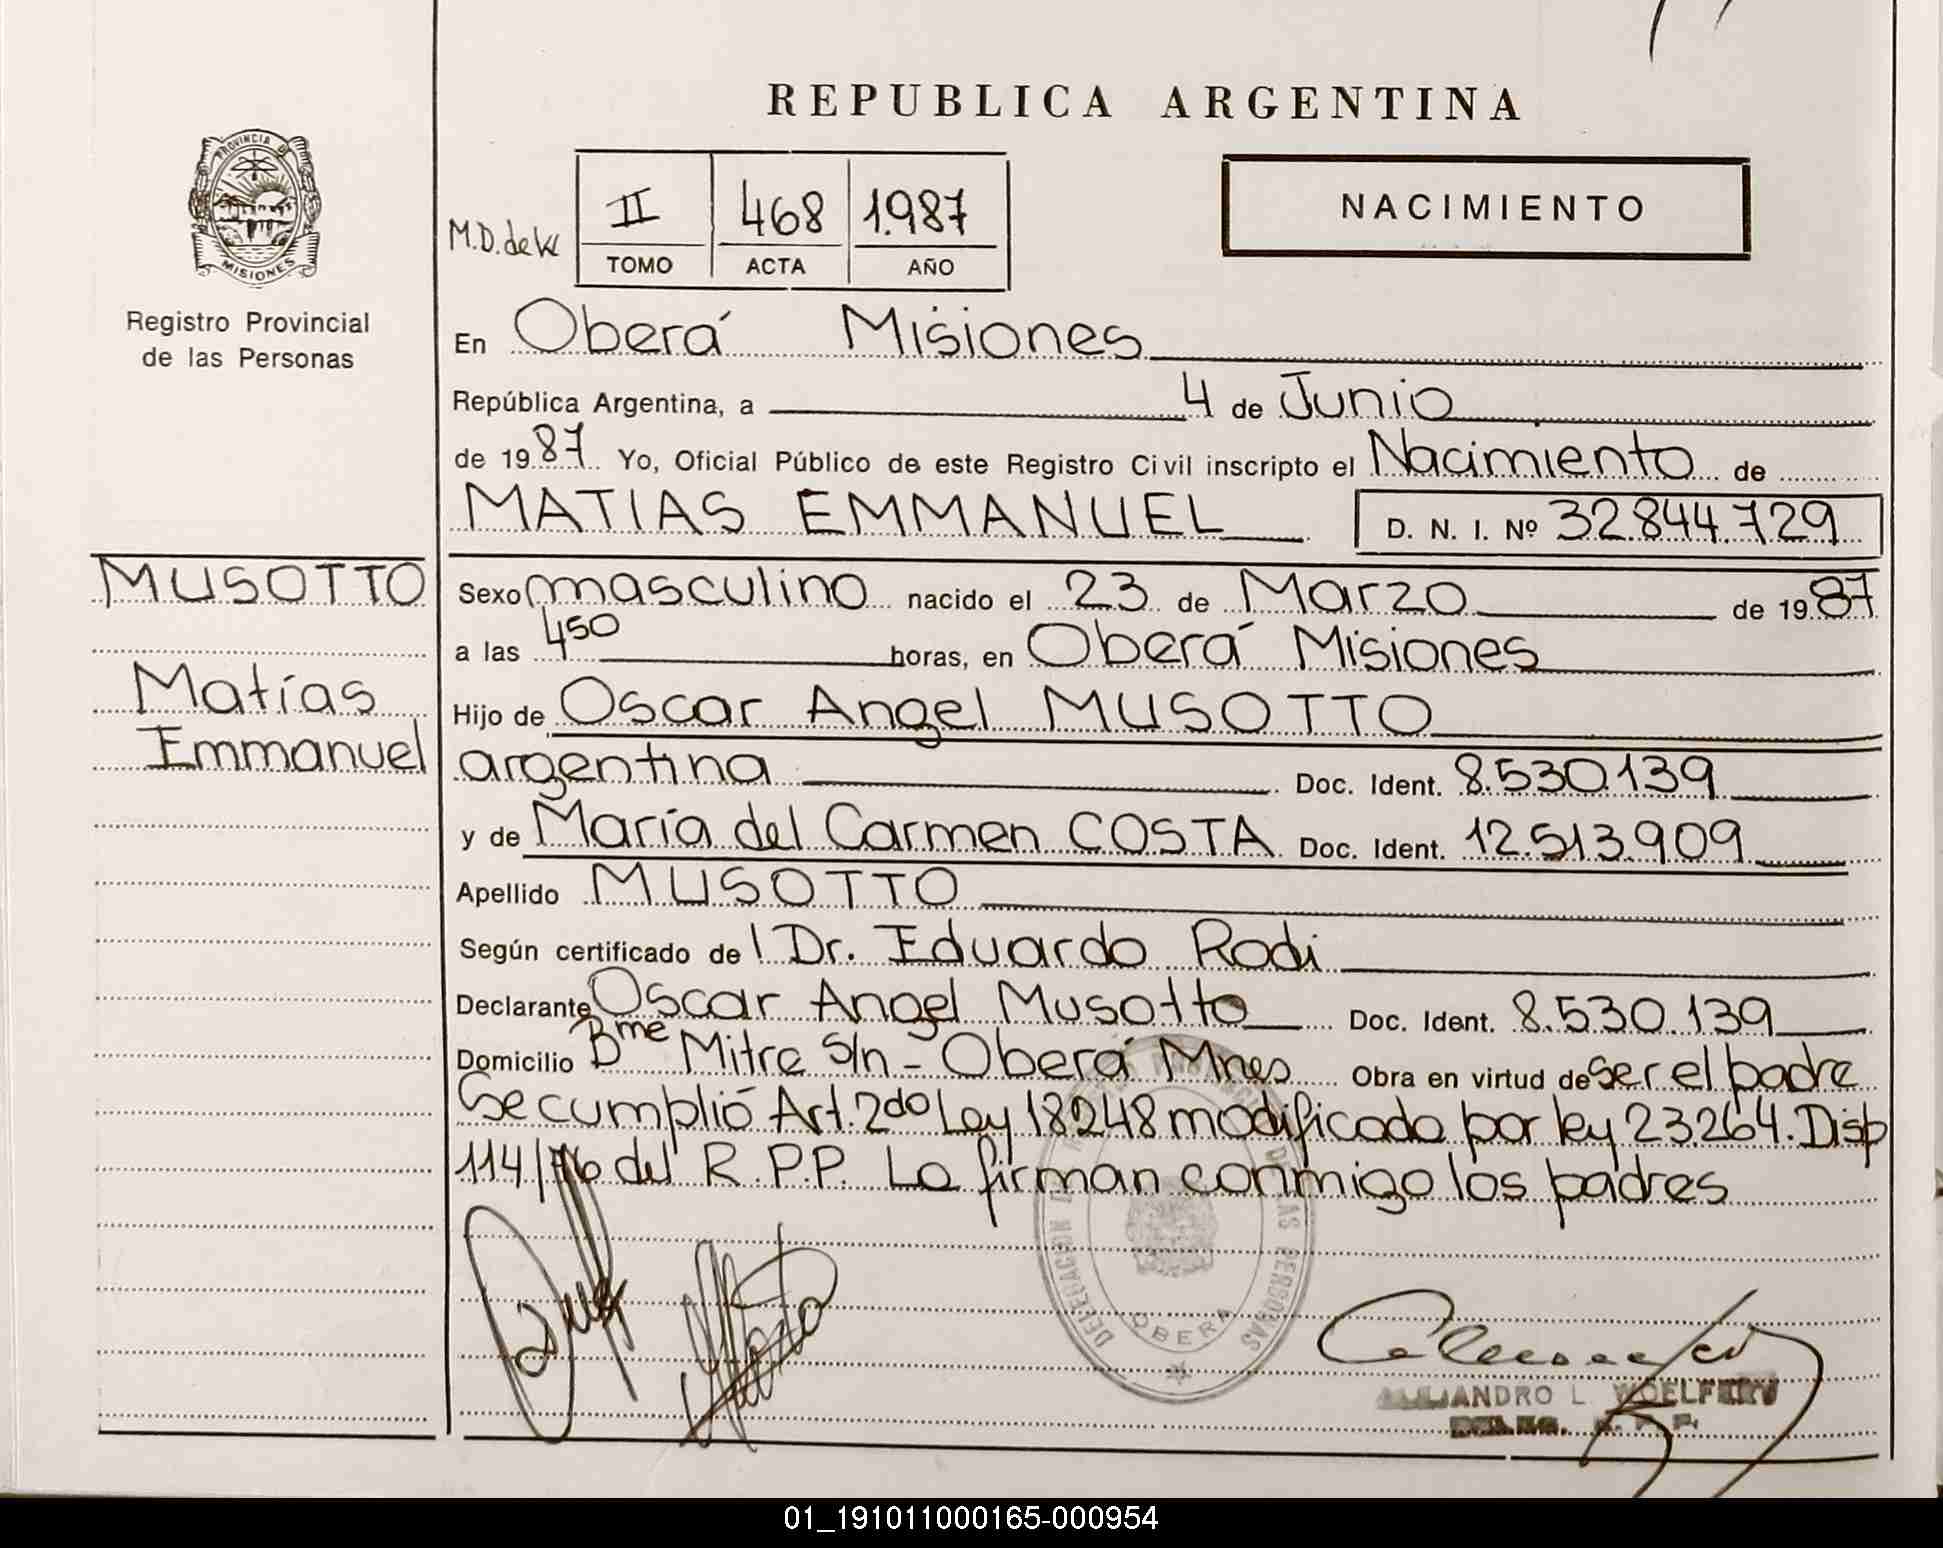 REPUBLICA ARGENTINA
PROVINCIA DE
MISIONES
Registro Provincial
de las Personas
NACIMIENTO
M.D. de
II 468 1.987
TOMO ACTA AÑO
En Oberá Misiones
República Argentina, a 4 de Junio
de 1987 Yo, Oficial Público de este Registro Civil inscripto el Nacimiento de
MATIAS EMMANUEL D. N. I. Nº 32.844.729
MUSOTTO
Matías
Emmanuel
Sexo masculino nacido el 23 de Marzo de 1987
a las 450 horas, en Oberá Misiones
Hijo de Oscar Angel MUSOTTO
argentina Doc. Ident. 8.530.139
y de María del Carmen COSTA Doc. Ident. 12.513.909
Apellido MUSOTTO
Según certificado de l Dr. Eduardo Rodi
Declarante Oscar Angel Musotto Doc. Ident. 8.530.139
Domicilio Bme Mitre S/n - Oberá Mnes Obra en virtud de ser el padre
Se cumplió Art. 2do Ley 18248 modificada por ley 23.264. Disp
114/ del R.P.P. La firman conmigo los padres
DELEGACION DE LAS PERSONAS
OBERA
ALEJANDRO L.
01_191011000165-000954